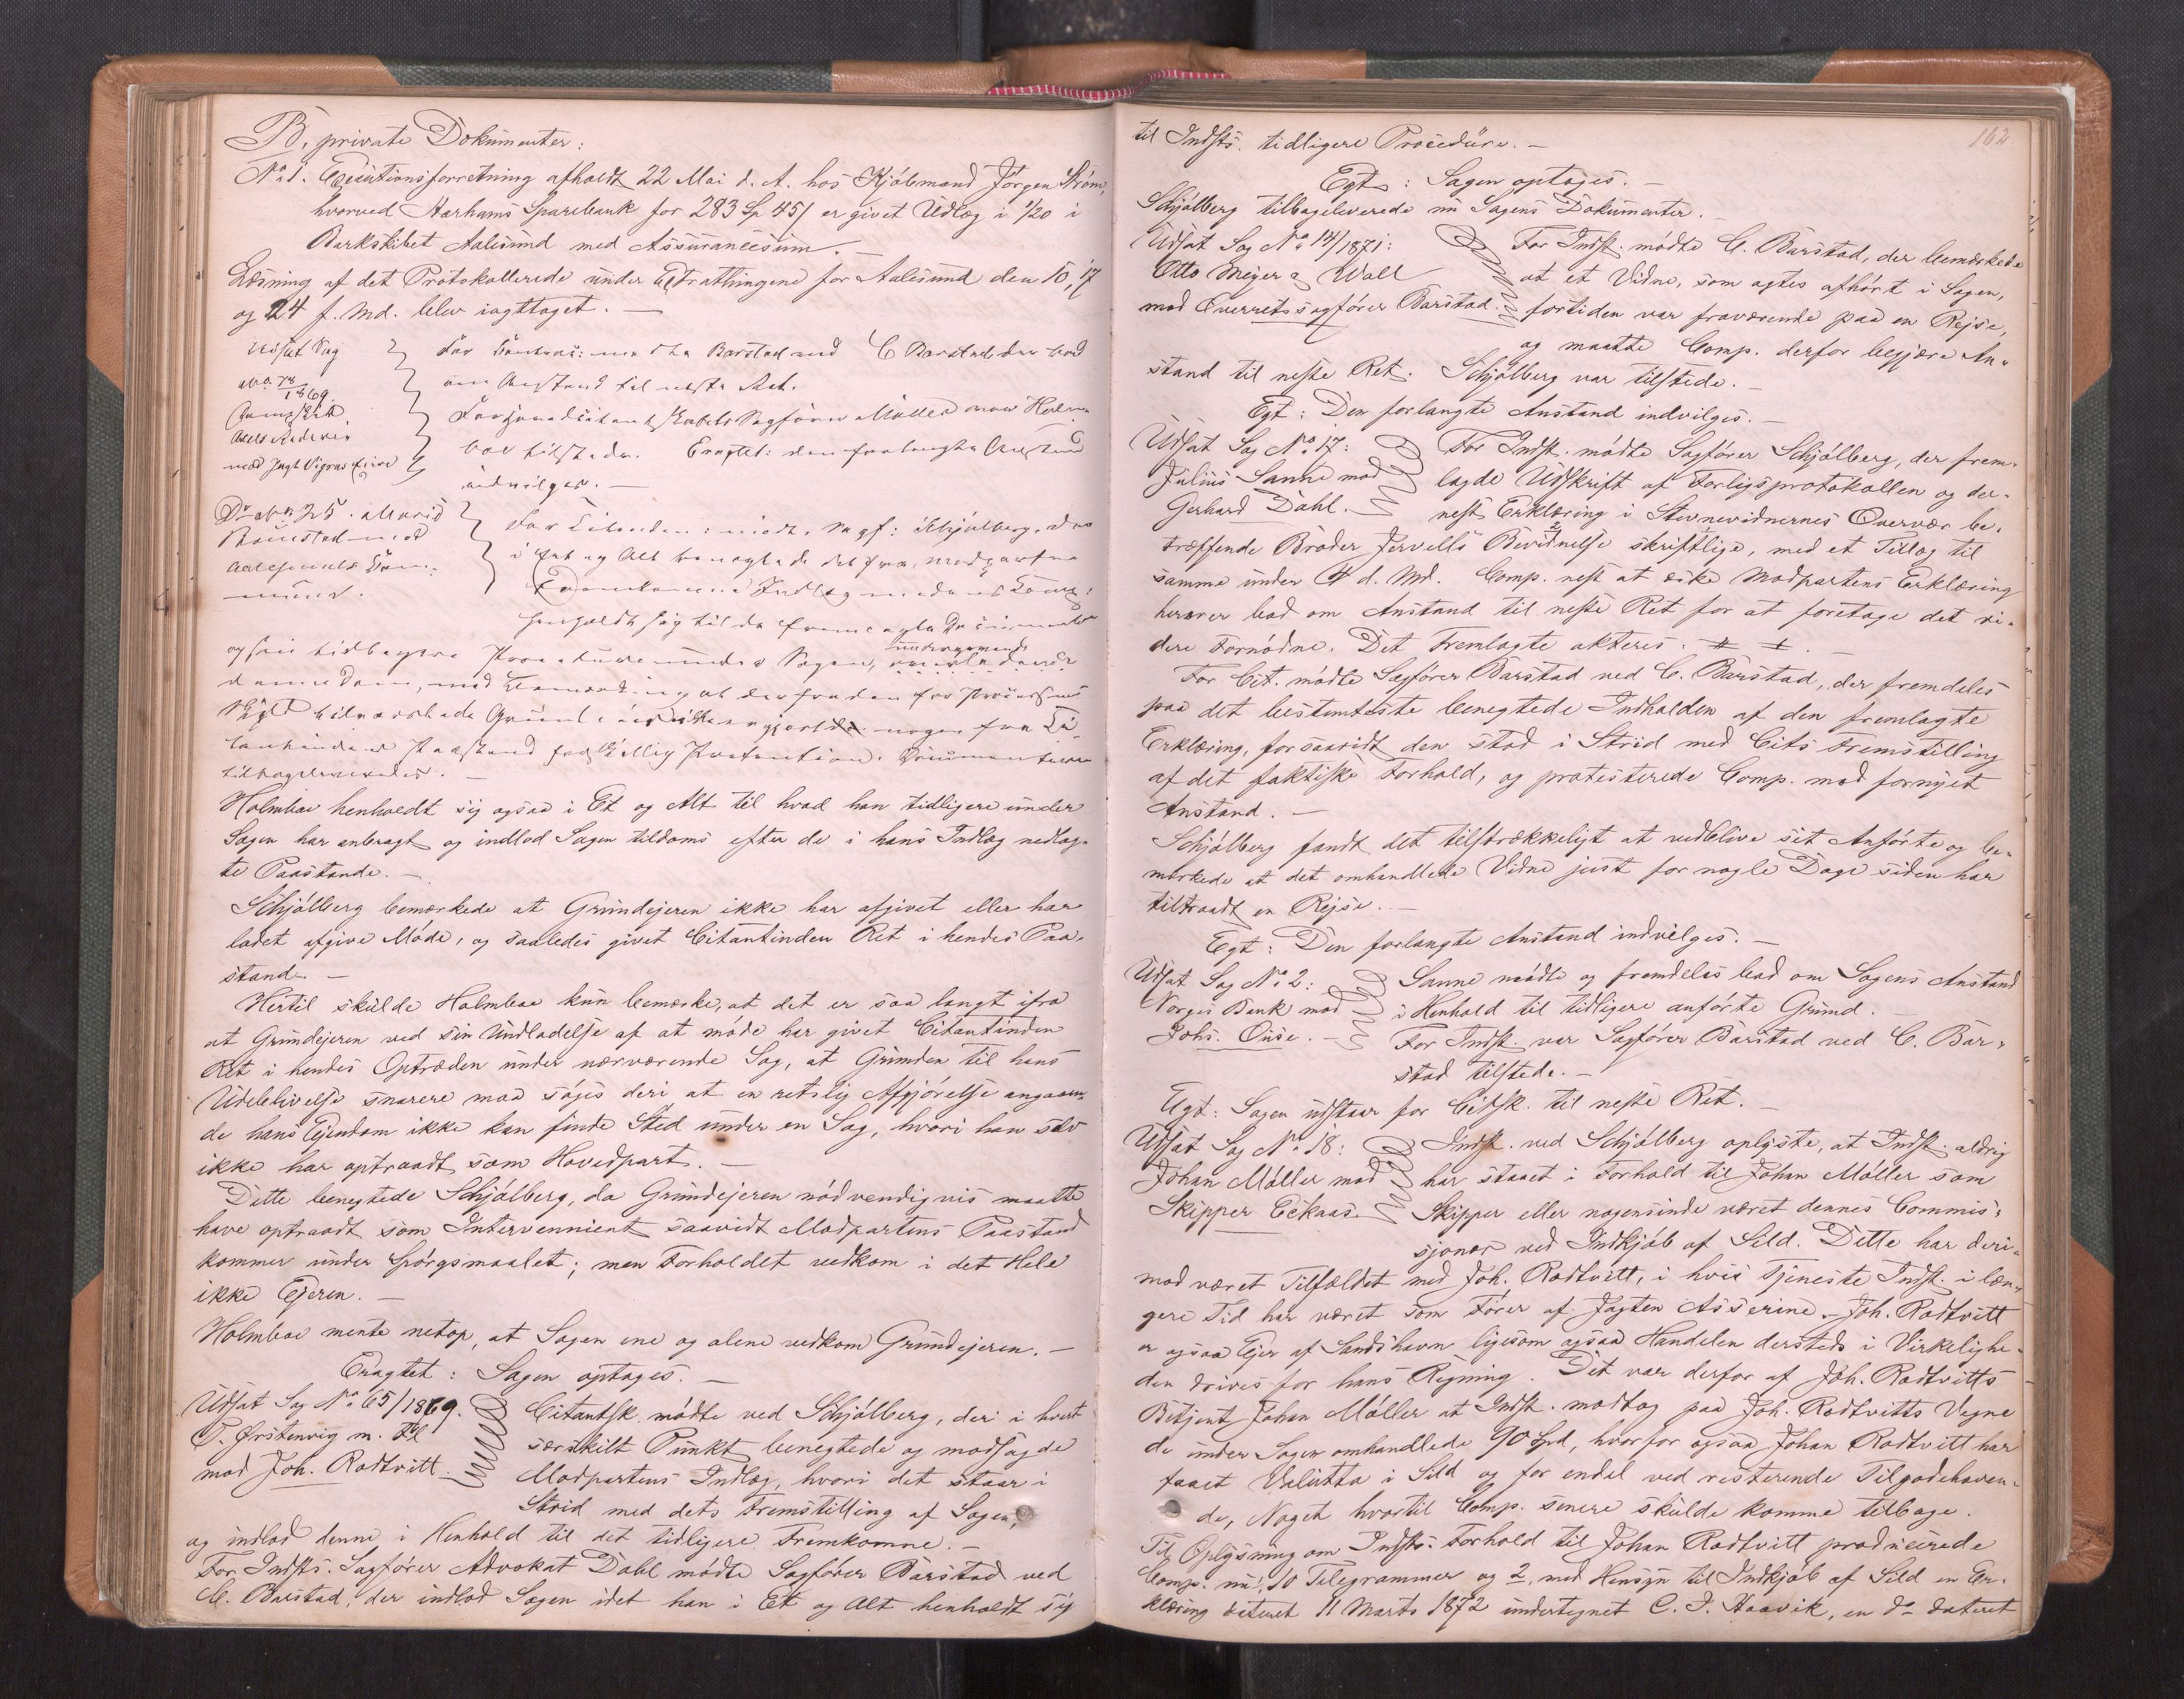 B, private Dokumenter:
No 1. Executionsforretning afholdt 22 Mai d. A. hos Kjøbmand Jørgen Strøm,
hvorved Harhams Sparebank for 283 Sp 45/ er givet Udlæg i 1/20 i
Barkskibet Aalesund med Assurancesum. —
Læsning af det Protokollerede under Extrathingene for Aalesund den 10, 17
og 24 f. Md. blev iagttaget. —
Udsat Sag
No. 78/1869.
mod Jagt Vigras Eiere
For møtte Barstad ved C Barstad der bad
om Anstand til næste Ret.
Sagfører Møller mow Holm
var tilstede. Eragtet: den forlangte Anstand
indvilges. —
Do No. 25.
mod
Aalesunds
For Citantinden: mødte Sagf: Schjølberg, der
i Et og Alt benægtede det fra Modparten
Indlæg
henholdt sig til de fremlagte Documenter
og sin tidligere Procedure under Sagen,
denne Dom, med Bemærkning at
Paastand
tilbageleveredes. —
Holmboe henholdt sig ogsaa i Et og Alt til hvad han tidligere under
Sagen har anbragt og indlod Sagen tildoms efter de i hans Indlæg nedlag-
te Paastande. —
Schjølberg bemærkede at Grundejeren ikke har afgivet eller har
ladet afgive Møde, og saaledes givet Citantinden Ret i hendes Paa-
stand. —
Hertil skulde Holmboe kun bemærke, at det er saa langt ifra
at Grundejeren ved sin Undladelse af at møde har givet Citantinden
Ret i hendes Optræden under nærværende Sag, at Grunden til hans
Udeblivelse snarere maa søges deri, at en retslig Afgjørelse angaaen-
de hans Ejendom ikke kan finde Sted under en Sag, hvori han selv
ikke har optraadt som Hovedpart. —
Dette benegtede Schjølberg, da Grundejeren nødvendigvis maatte
have optraadt som Intervennient saavidt Modpartens Paastand
kommer under Spørgsmaalet; men Forholdet vedkom i det Hele
ikke Ejeren. —
Holmboe mente netop, at Sagen ene og alene vedkom Grundejeren. —
Eragtet: Sagen optages. —
Udsat Sag No 65/1869.
P. Ørstenvig m. Fl
mod Joh. Rødtvitt.
Citantsk. mødte ved Schjølberg, der i hvert
særskilt Punkt benegtede og modsagde
Modpartens Indlæg, hvori det staar i
Strid med dets Fremstilling af Sagen,
og indlod denne i Henhold til det tidligere Fremkomne. —
For Indsts. Sagfører Advokat Dahl mødte Sagfører Barstad ved
C. Barstad, der indlod Sagen idet han i Et og Alt henholdt sig
162
til Indsts. tidligere Procedure. —
Egt: Sagen optages. —
Schjølberg tilbageleverede nu Sagens Dokumenter. —
Udsat Sag No 14/1871:
Otto Meyer & Wall
mod Overretssagfører Barstad.
For Indst. mødte C. Barstad, der bemærkede
at et Vidne, som agtes afhørt i Sagen,
fortiden var fraværende paa en Rejse,
og maatte Comp. derfor begjære An-
stand til neste Ret. Schjølberg var tilstede. —
Egt: Den forlangte Anstand indvilges. —
Udsat Sag No 17:
Julius Sanne mod
Gerhard Dahl. —
For Indst. mødte Sagfører Schjølberg, der frem-
lagde Udskrift af Forligsprotokollen og der-
nest Erklæring i Stevnevidnernes Overvær be-
træffende Brødr Jervells Bevidnelse skriftlige, med et Tillæg til
samme under 4 d. Md. Comp. nest at æske Modpartens Erklæring
herover bad om Anstand til neste Ret for at foretage det vi-
dere Fornødne. Det Fremlagte akteres.
For Cit. mødte Sagfører Barstad ved C. Barstad, der fremdeles
paa det bestemteste benegtede Indholden af den fremlagte
Erklæring, forsaavidt den stod i Strid med Cits Fremstilling
af det faktiske Forhold, og protesterede Comp. mod fornyet
Anstand. —
Schjølberg fandt det tilstrækkeligt at vedblive sit Anførte og be-
mærkede at det omhandlede Vidne just for nogle Dage siden har
tiltraadt en Rejse. —
Egt: Den forlangte Anstand indvilges. —
Udsat Sag No 2:
Norges Bank mod
Johs. Onse. —
Sanne mødte og fremdeles bad om Sagens Anstand
i Henhold til tidligere anførte Grund. —
For Indst. var Sagfører Barstad ved C. Bar-
stad tilstede. —
Egt: Sagen udstaar for Citsk. til neste Ret. —
Udsat Sag No 18:
Johan Møller mod
Skipper Eekaas.
Indst. ved Schjølberg oplyste, at Indst. aldrig
har staaet i Forhold til Johan Møller som
Skipper eller nogensinde været dennes Commis-
sjonær ved Indkjøb af Sild. Dette har deri-
mod været Tilfældet med Joh. Rødtvitt, i hvis Tjeneste Indst. i læn-
gere Tid har været som Fører af Jagten Asserine. Joh. Rødtvitt
er ogsaa Ejer af Sandshavn ligesom ogsaa Handelen dersteds i Virkelighe-
den drives for hans Regning. Det var derfor af Joh. Rødtvitts
Betjent Johan Møller at Indst. modtog paa Joh. Rødtvitts Vegne
de under Sagen omhandlede 90 Spd, hvorfor ogsaa Johan Rødtvitt har
faaet Valutta i Sild og for endel ved resterende Tilgodehaven-
de, Noget hvortil Comp. senere skulde komme tilbage.
Til Oplysning om Indsts: Forhold til Johan Rødtvitt producerede
Comp. nu, 10 Telegrammer og 2, med Hensyn til Indkjøb af Sild en Er-
klæring dateret 11 Marts 1872 undertegnet C. J. Haavik, en do dateret